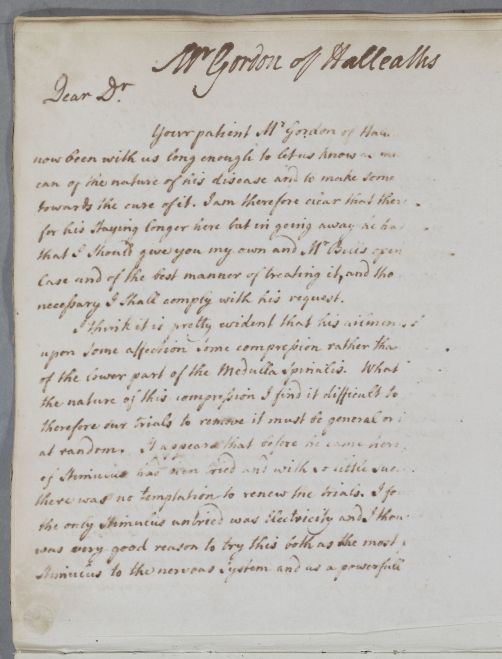 Mr Gordon of Halleaths
Dear Dr
Your patient Mr Gordon of Hall
now been with us long enough to let us know as we
can of the nature of his disease and to make some
towards the cure of it. I am therefore clear that ther
for his staying longer here but in going away he has
that I should give you my own and Mr Bells opin
Case and of the best manner of treating it, and tho
necessary I shall comply with his request.
I think it is pretty evident that his ailmen
upon some affection some compression rather tha
of the lower part of the Medulla Spinalis. What
the nature of this compression I find it difficult to
therefore our trials to remove it must be general or
at random. It appears that before he came here
of Stimulus had been tried and with so little suc
there was no temptation to renew the trials. I fo
the only Stimulus untried was Electricity and I thou
was very good reason to try this both as the most
Stimulus to the nervous System and as a powerfull